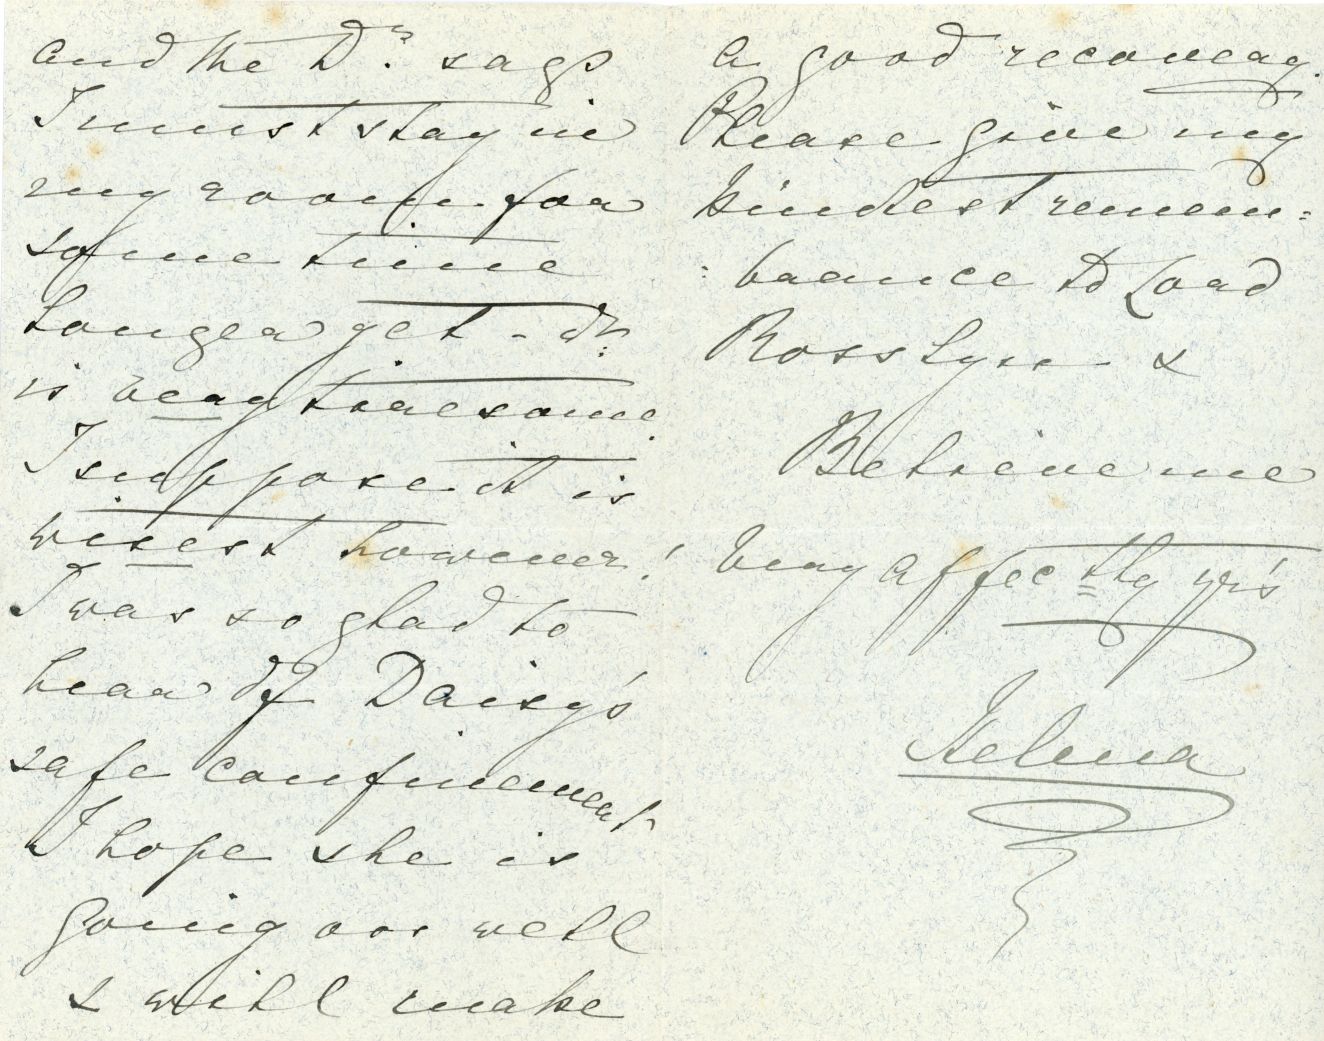 and the Dr. says
I must stay in
my room for
some time
longer yet - It
is very tiresome.
I suppose it is
wisest however!
I was so glad to
hear of Daisy's
safe confinement
I hope she is
going on well
& will make
a good recovery.
Please give my
kindest remem:
:brance to Lord
Rosslyn &
Believe me
Very affectly yrs
Helena